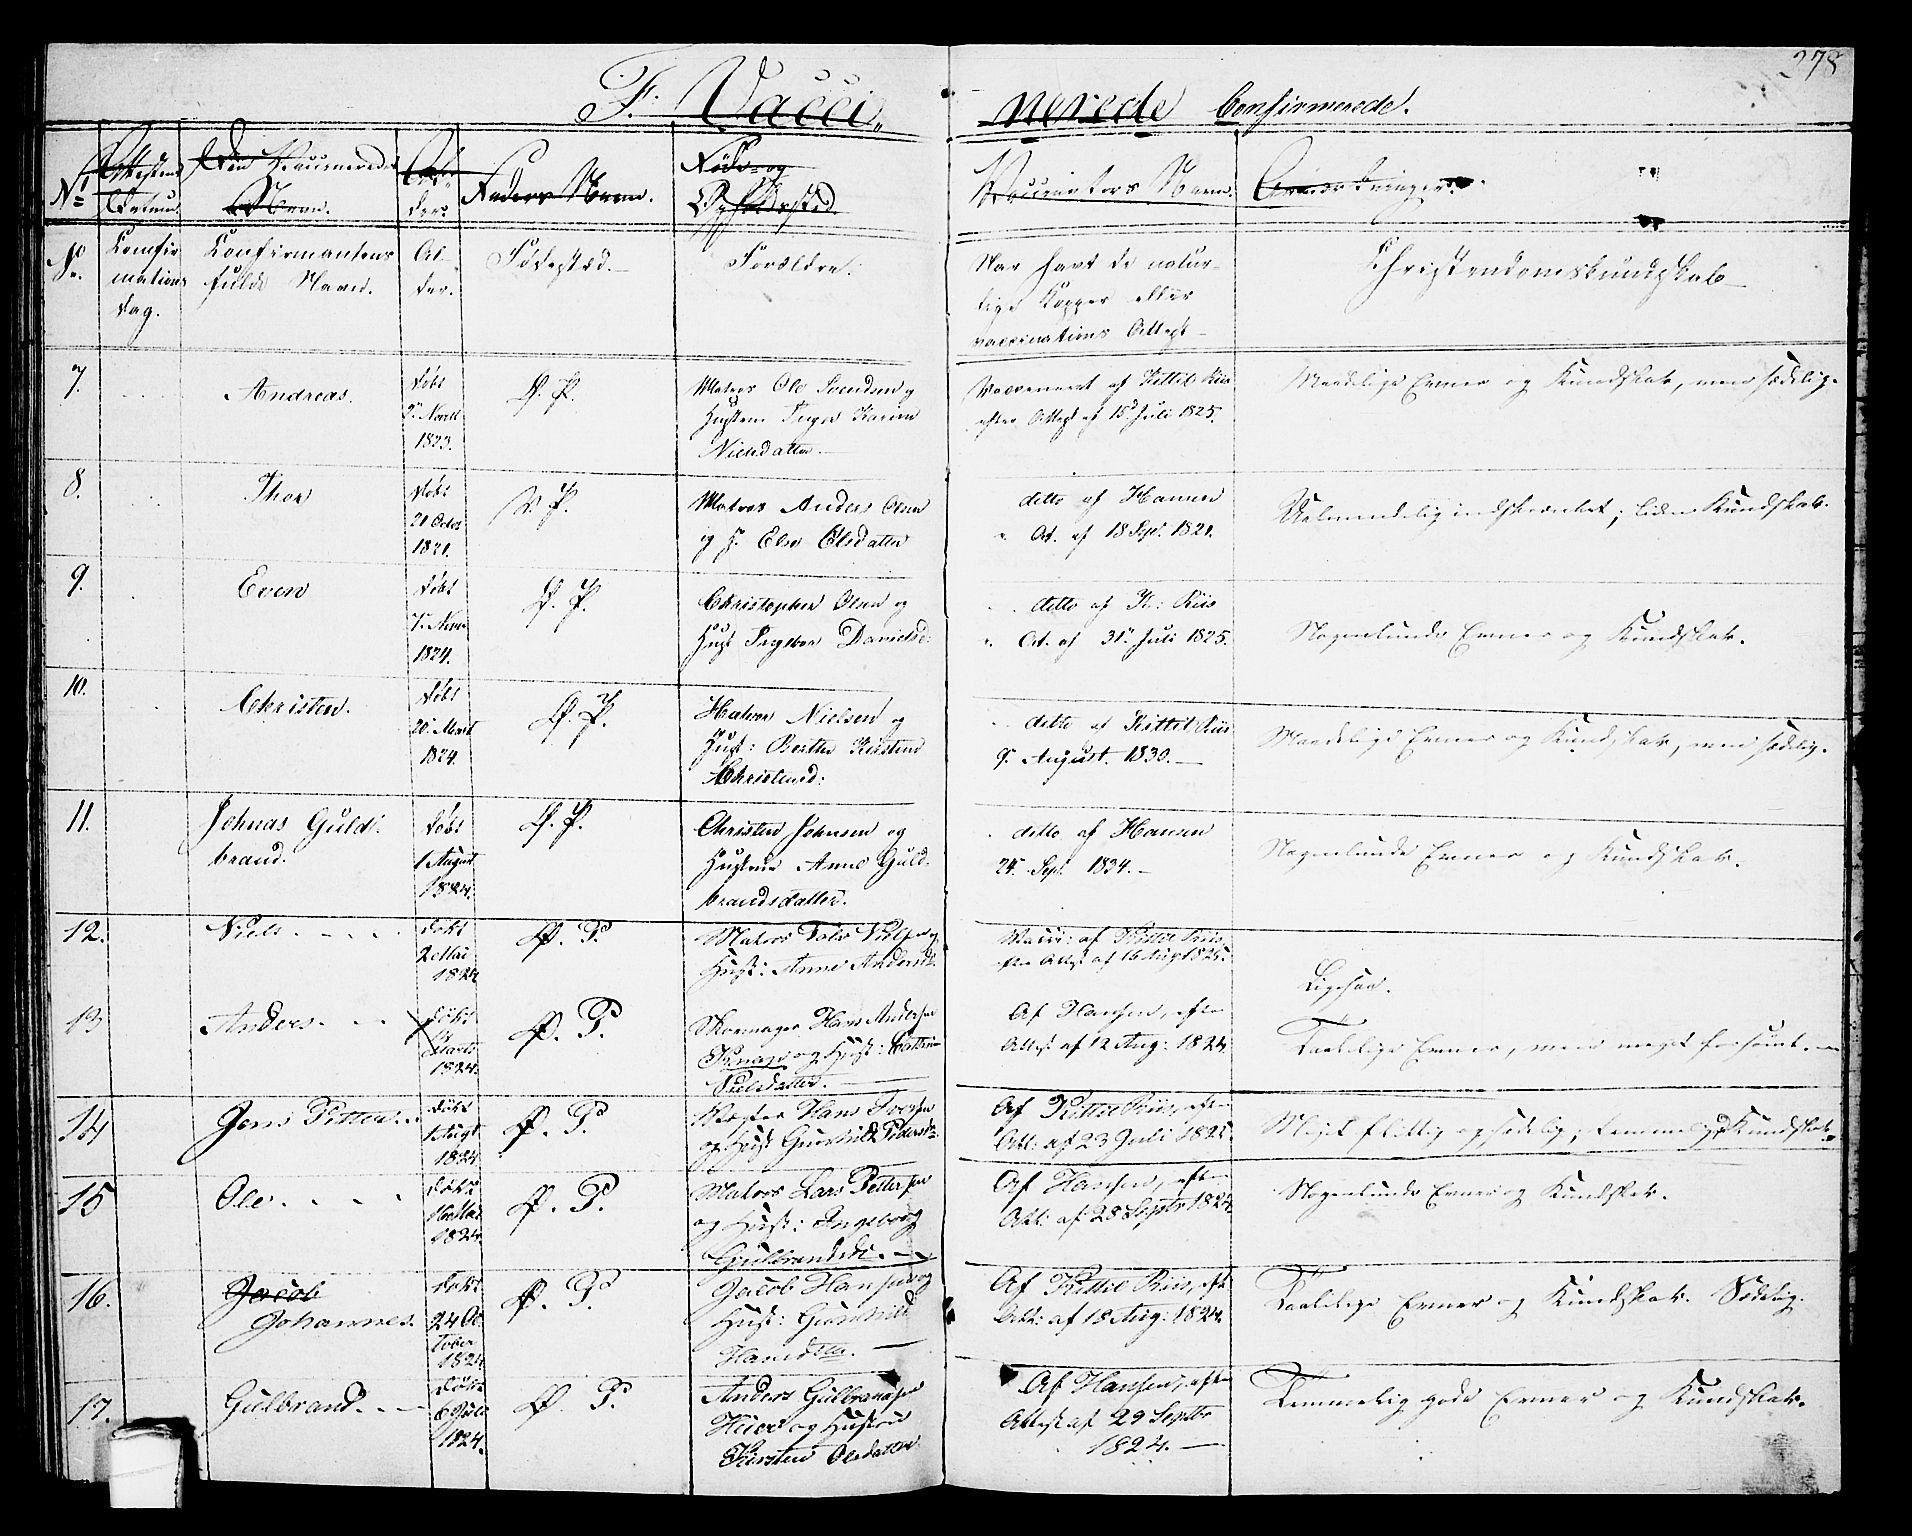 278
F. Vacci„
nerede Confirmerede.
No
Attestens Datum.
Den Vaccineredes Navn.
Alder.
Faders Navn.
Føde- og Opholdssted.
Vaccinators Navn.
Anmærkninger.
No.
Confirmations dag.
Confirmantens fulde Navn.
Alder.
Fødested.
Forældre.
Har havt de naturlige Kopper eller vaccinations Attest
Christendomskundskab
7. Andreas. døbt 9. Novbr 1823. P. Matros Ole Svendsen og
Hustru Inger Karine
Nielsdatter.
Vaccineret af Kittil Riis
efter Attest af 15d Juli 1825.
Maadelige Evner og Kundskab, men sædelig.
8. Thor døbt 21 Octbr 1821. P. Matros Anders Olsen
og H. Else Olsdatter
ditto af Hansen
" Att. af 18 Sept. 1821.
Ualmindelig indskrænket; liden Kundskab.
9. Even døbt 7. Novr 1824. P. Christopher Olsen og
Hust Ingebor Davidsd:
ditto af K: Riis
" Att. af 31. Juli 1825.
Nogenlunde Evner og Kundskab.
10. Christen. døbt 20. Marts 1824. P. Halvor Nielsen og
Hust: Berthe Kirstine
Christensd:
ditto af Kittil Riis
9. August. 1830.
Maadelige Evner og Kundskab, men sædelig.
11. Johnas Guldbrand. døbt 1 August 1824. P. Christen Johnsen og
Hustrue Anne Guldbrandsdatter.
ditto af Hansen
24. Sept. 1834.
Nogenlunde Evner og Kundskab.
12. Niels døbt 2 Mai 1824 P. Matros Nielsen og
Hust: Anne Andersdt.
Vacci: af Kittil Riis,
efter Attest af 16 Aug 1825.
Ligesaa.
13 Anders. døbt Marts 1824. P. Skomager Hans Andersen
Knap og Hust:
Nielsdatter.
Af Hansen, efter
Attest af 12 Aug: 1824.
Taalelige Evner, men meget forsømt.
14 Jens Petter døbt 1 Augt 1824 P. Hans Iversen
og Hust Gunhild Pedersdtr
Af Kittil Riis, efter
Att: af 23 Juli 1825.
Meget flittig og sædelig; Kundskab.
15 Ole døbt 16 Mai 1824. P. Matros Lars Pettersen
og Hust: Ingeborg
Gulbrandsdt.
Af Hansen, efter
Att: af 28 Septr 1824
Nogenlunde Evner og Kundskab.
16. Jacob
Johannes. døbt 24 October 1824 P. Jacob Hansen og
Hust: Gunhild
Hansdtr.
Af Kittil Riis, eft
Att: af 18 Aug: 1824.
Taalelige Evner og Kundskab. Sædelig.
17. Gulbrand. døbt 6 1824. P. Anders Gulbrandsen
Heier og Hustrue
Kirsten Olsdatter
Af Hansen, efter
Attest af 29 Septbr
1824.
Temmelig gode Evner og Kundskab.